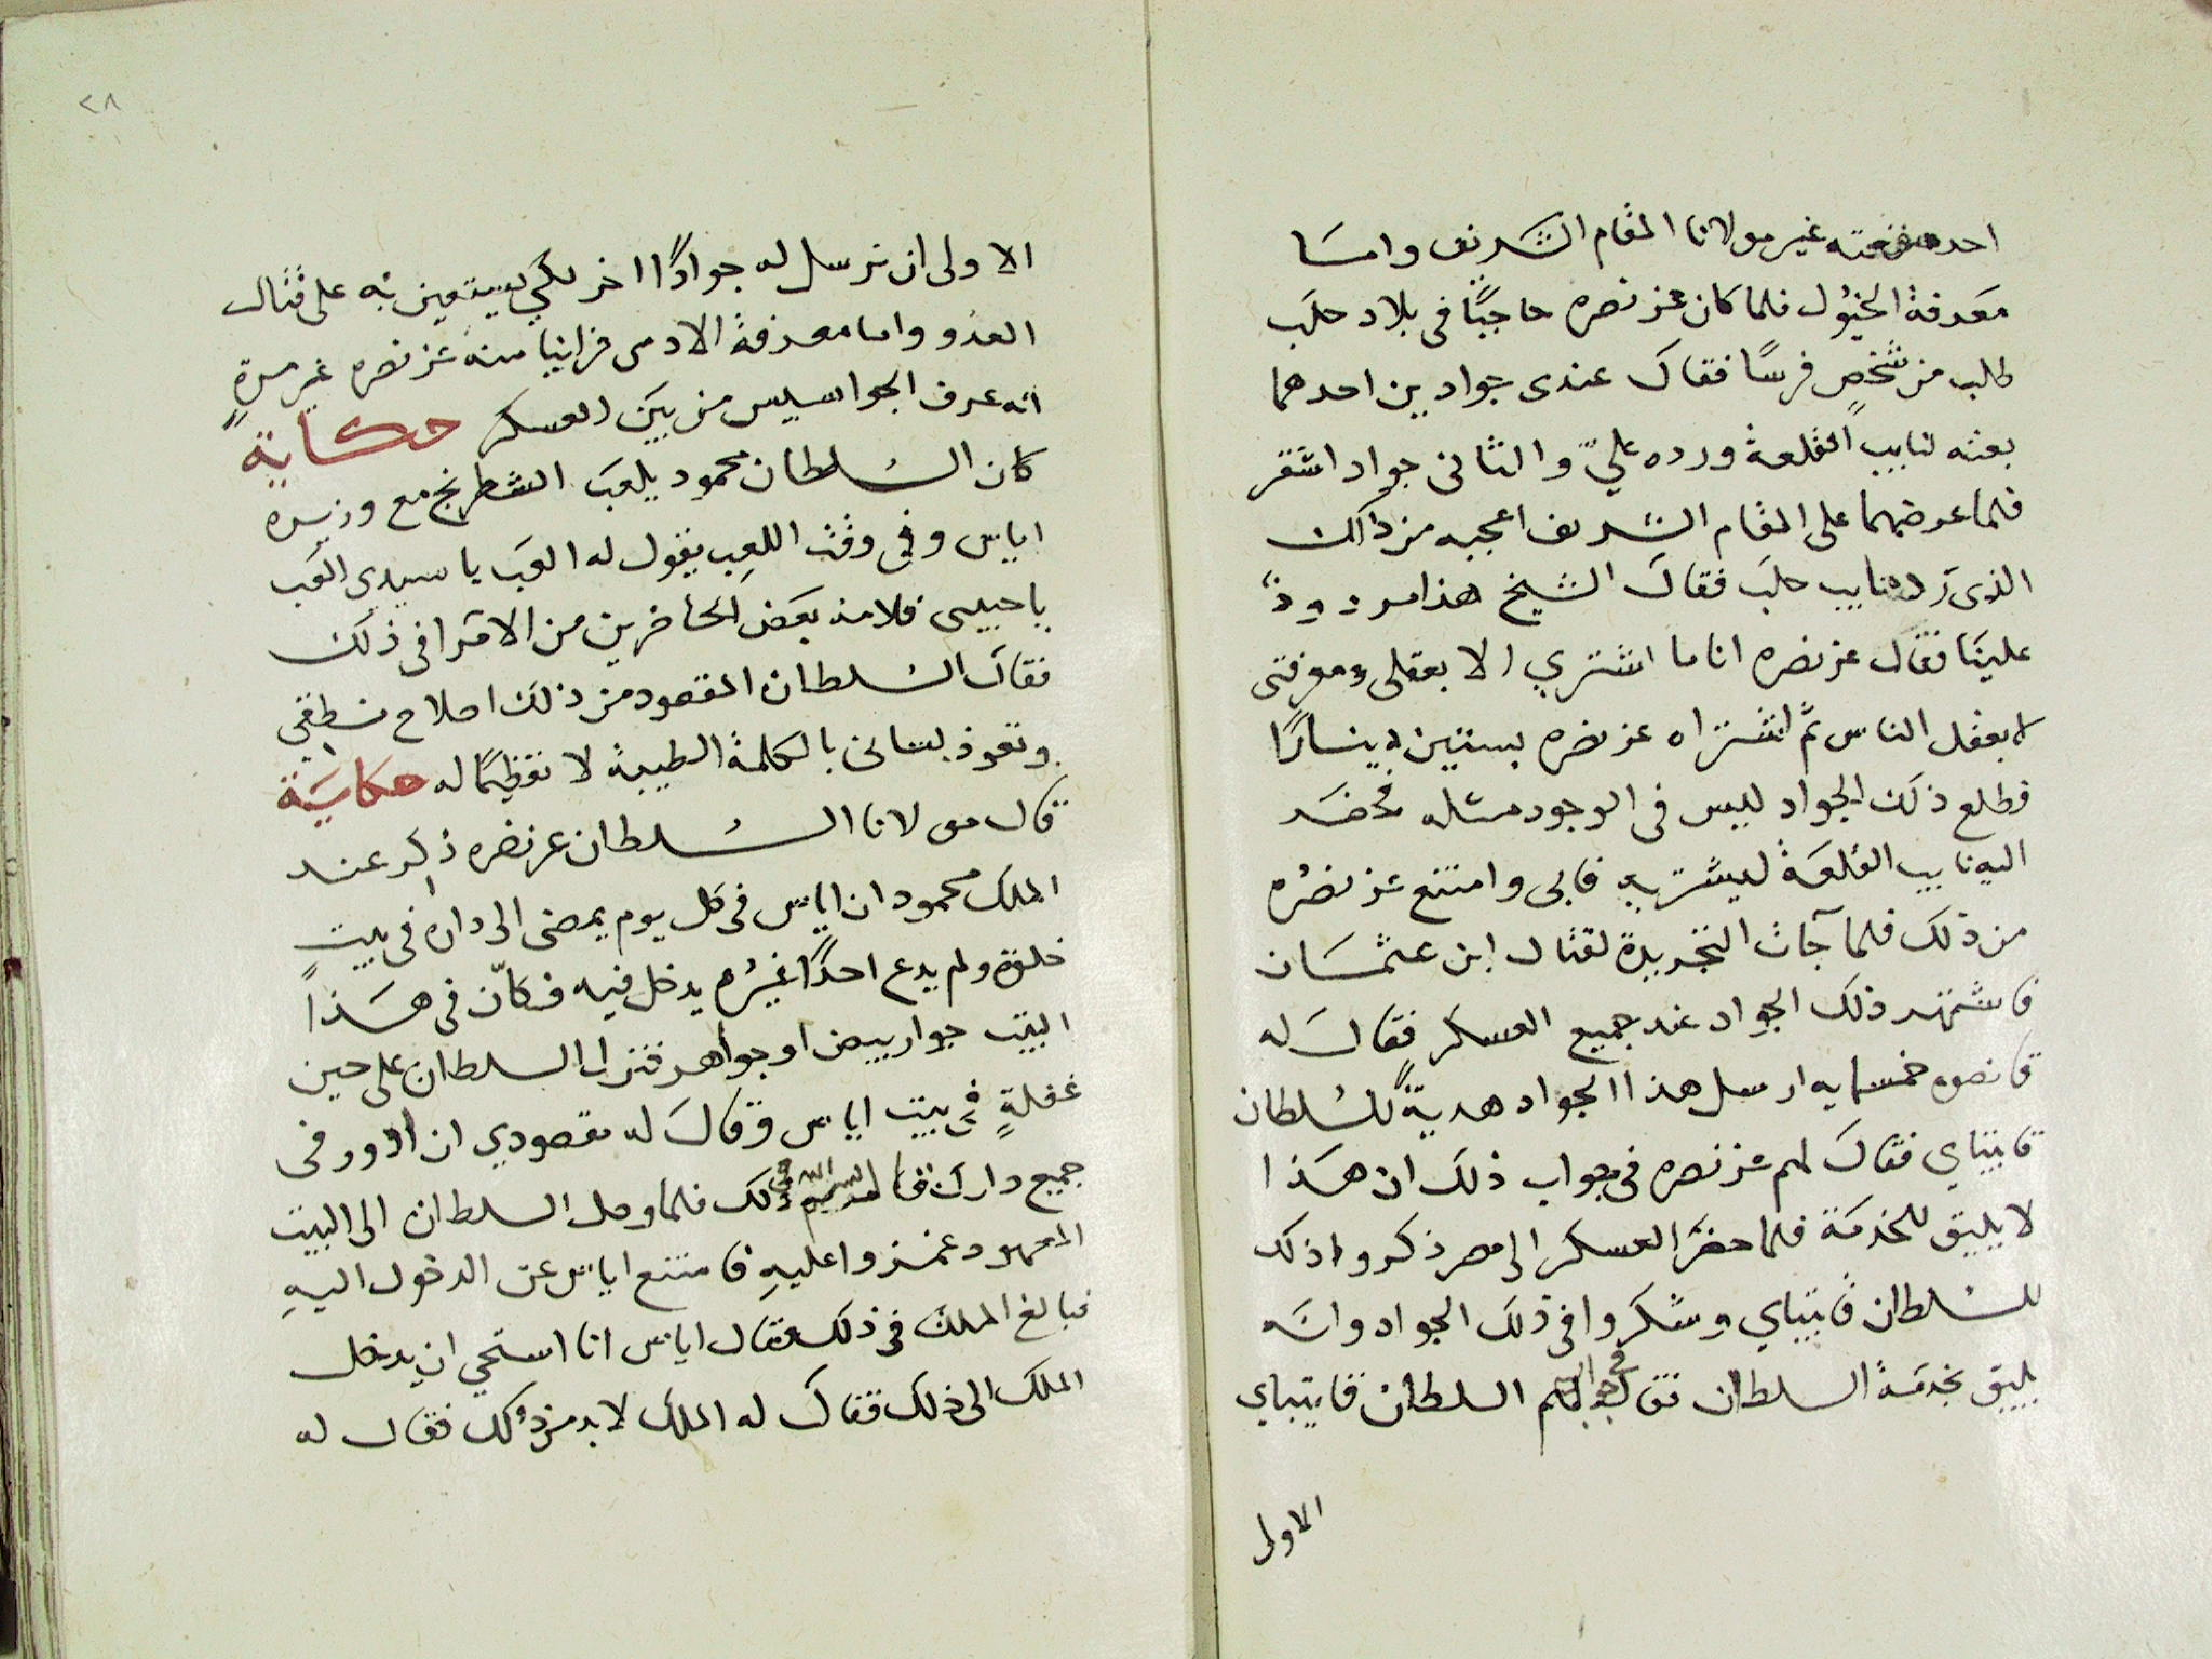 احد منفعته غير مولانا المقام الشريف واما
معرفة الخيول فلما كان عز نصره حاجبًا فى بلاد حلب
طلب من شخصٍ فرسًا فقال عندى جوادين احدهما
بعثه لنايب القلعة ورده عليّ والثانى جواد اشقر
فلما عرضهما على المقام الشريف اعجبه من ذاك
الذى رده نايب حلب فقال الشيخ هذا مردودٌ
علينا فقال عز نصره انا ما اشتري الا بعقلى ومعرفتى
لا بعقل الناس ثم اشتراه عز نصره بستين دينارًا
فطلع ذلك الجواد ليس فى الوجود مثله فحضر
اليه نايب القلعة ليشتريه فابى وامتنع عز نصره
من ذلك فلما جآت التجريدة لقتال ابن عثمان
فاشتهر ذلك الجواد عند جميع العسكر فقال له
قانصوه خمسمايه ارسل هذا الجواد هديةً للسلطان
قايتباي فقال لهم عز نصره فى جواب ذلك ان هذا
لا يليق للخدمة فلما حضر العسكر الى مصر ذكروا ذلك
للسلطان قايتباي وشكروا فى ذلك الجواد وانه
يليق بخدمة السلطان فقال فى جوابهم السلطان قايتباي
الاولى
٢٨
الاولى ان نرسل له جوادًا اخر لكي يستعين به على قتال
العدو واما معرفة الادمى فراينا منه عز نصره غير مرةٍ
انه عرف الجواسيس من بين العسكر حكاية
كان السلطان محمود يلعب الشطرنج مع وزيره
اياس وفى وقت اللعب يقول له العب يا سيدى العب
يا حبيبى فلامه بعض الحاضرين من الامرا فى ذلك
فقال السلطان المقصود من ذلك اصلاح نطقي
وتعوذ لسانى بالكلمة الطيبة لا تعظيمًا له حكاية
قال مولانا السلطان عز نصره ذكر عند
الملك محمود ان اياس فى كل يوم يمضى الى داره فى بيت
خلوة ولم يدع احدًا غيره يدخل فيه فكان فى هذا
البيت جوار بيض او جواهر فنزل السلطان على حين
غفلةٍ فى بيت اياس وقال له مقصودي ان ادور فى
جميع دارك فقال بسم الله فى ذلك فلما وصل السلطان الى البيت
المعهود غمزوا عليه فامتنع اياس عن الدخول اليه
فبالغ الملك فى ذلك فقال اياس انا استحي ان يدخل
الملك الى ذلك فقال له الملك لا بد من ذلك فقال له